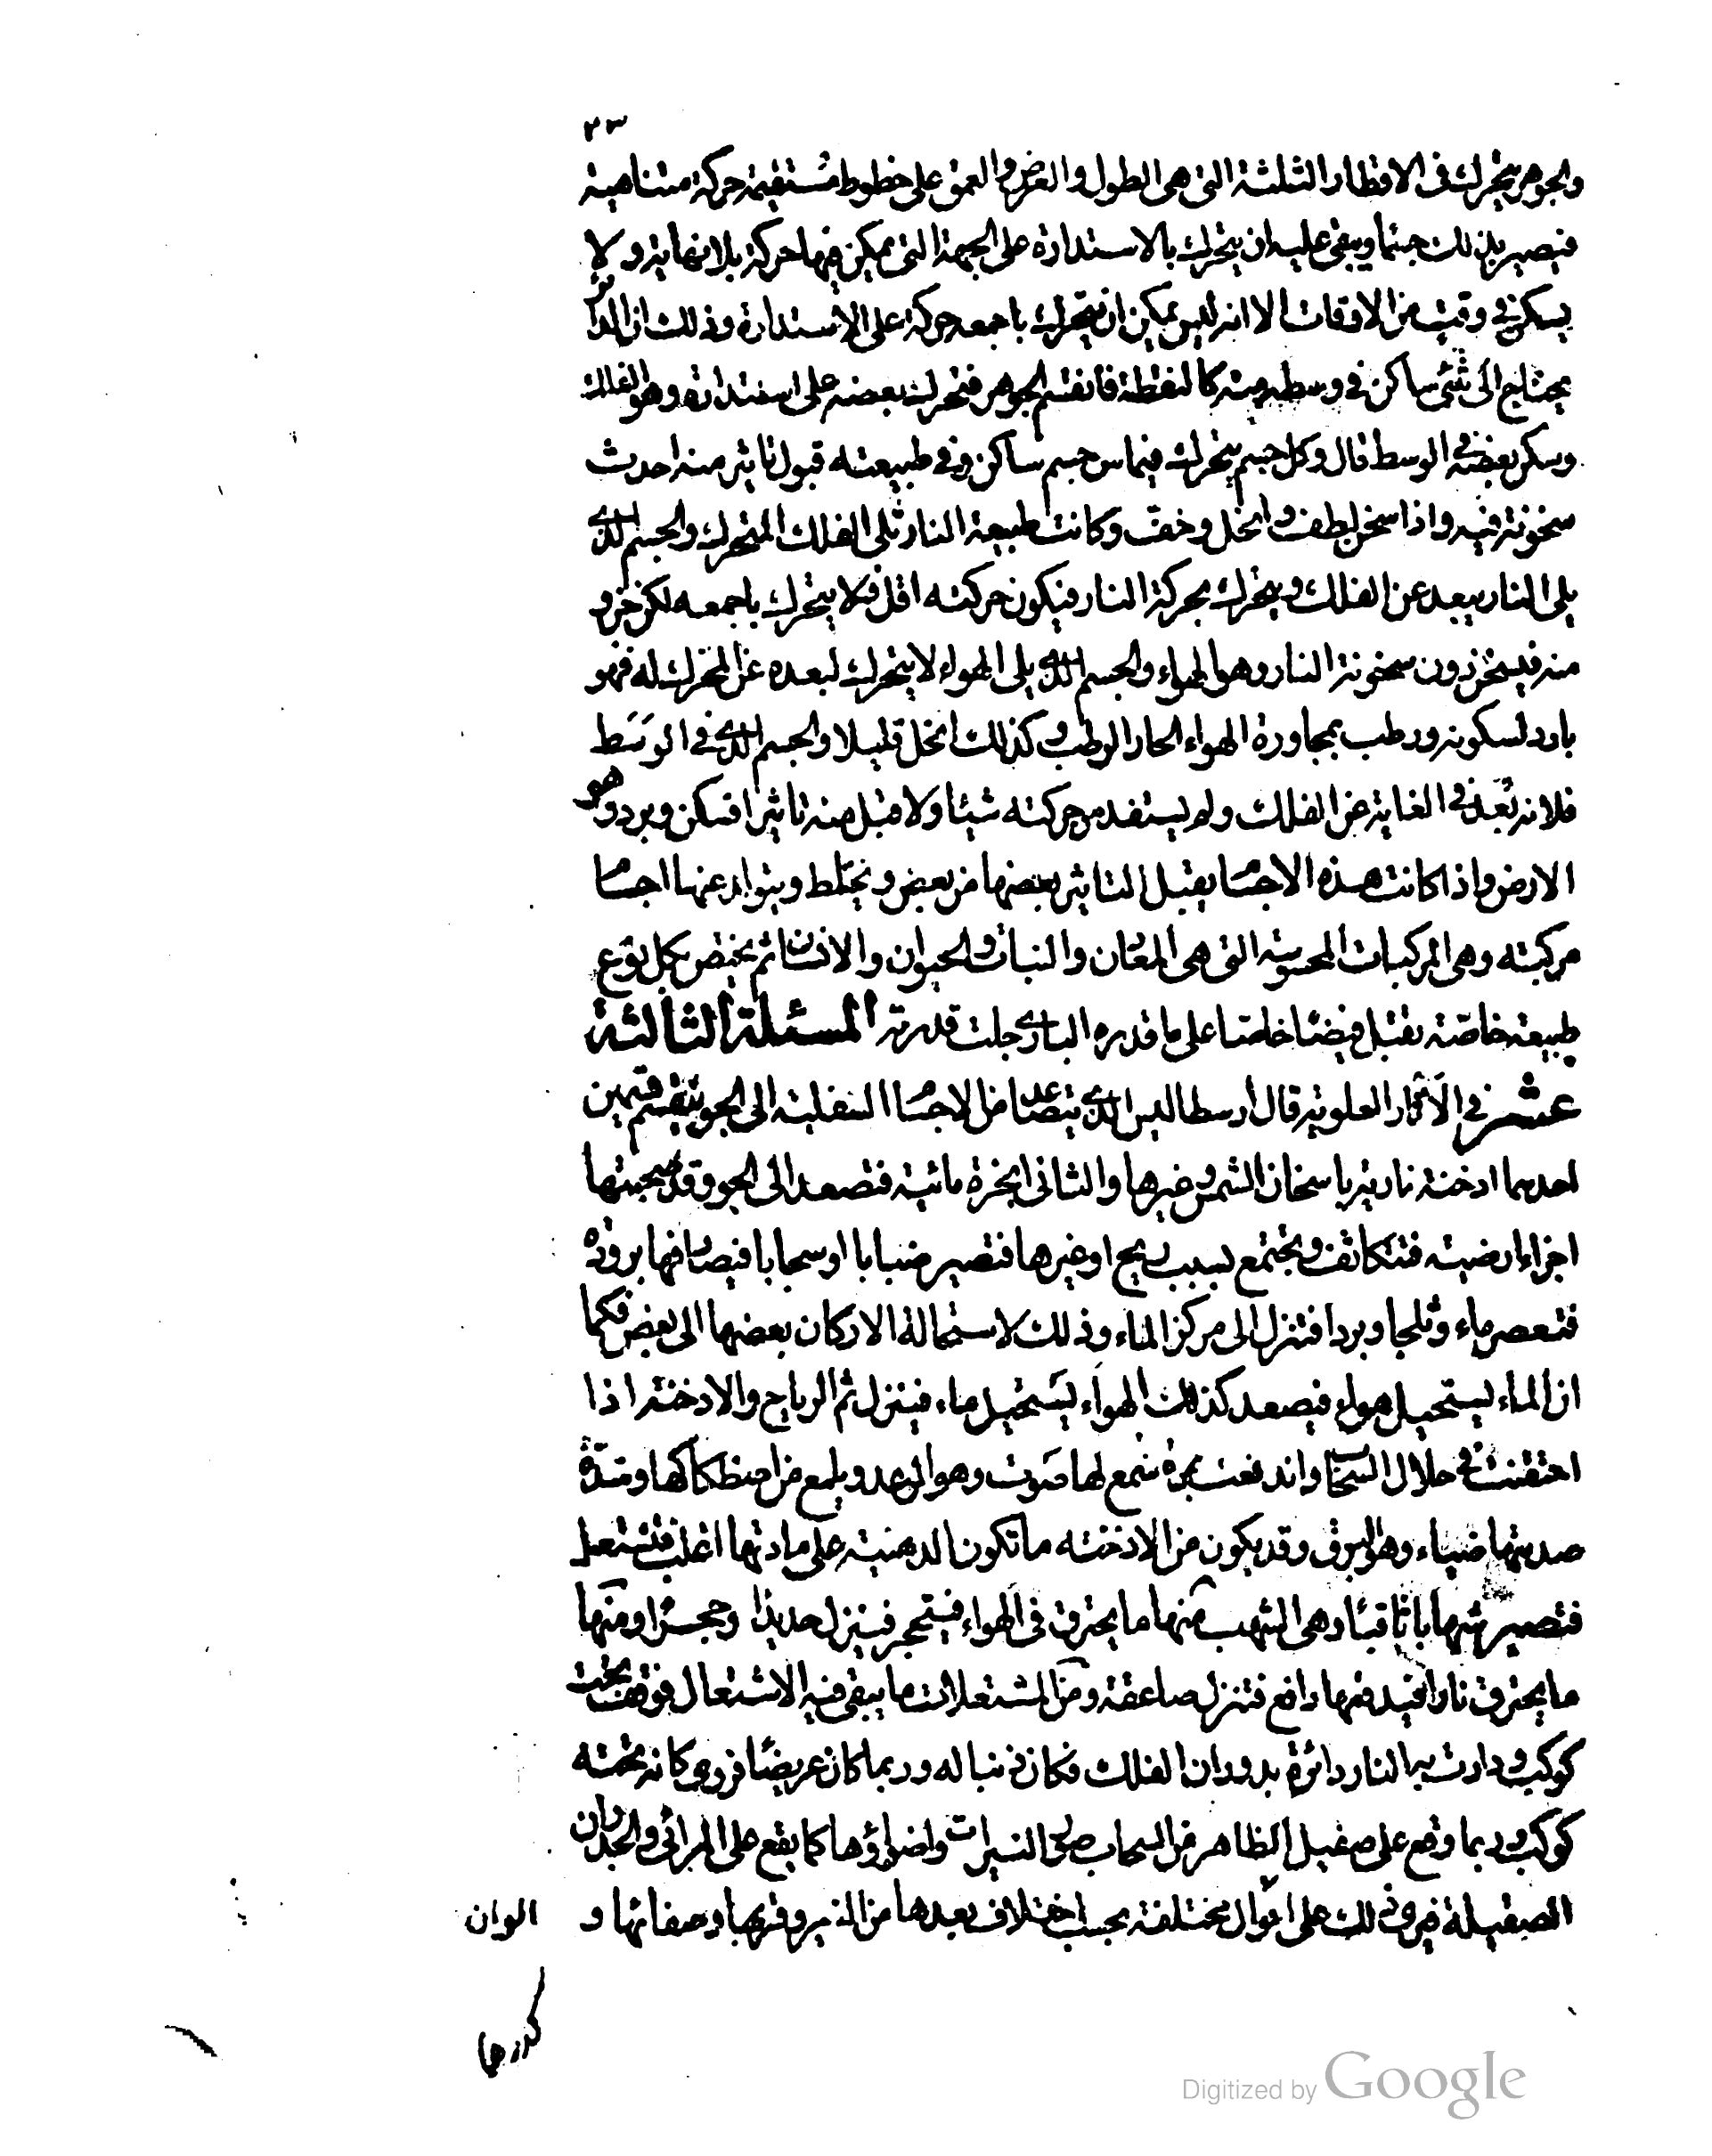 ٢٣
والجوهر يتحرك فى الاقطار الثلثة التى هى الطول والعرض والعمق على خطوط مستقيمة حركة متناهية
فيصير بذلك جسما ويبقى عليه ان يتحرك بالاستدارة على الجهة التى يمكن فيها حركة بلا نهاية ولا
يسكن فى وقت من الاوقات الا انه ليس يمكن ان يتحرك باجمعه حركة على الاستدارة وذلك ان الدائر
يحتاج الى شئ ساكن فى وسط منه كالنقطة فانقسم الجوهر فتحرك بعضه على استدارته وهو الفلك
وسكن بعضه فى الوسط قال وكل جسم يتحرك فيماس جسم ساكن وفى طبيعته قبول تاثير منه احدث
سخونة فيه واذا سخن لطف وانحل وخف وكانت طبيعة النار تلى الفلك المتحرك والجسم الذى
يلى النار يبعد عن الفلك ويتحرك بحركة النار فيكون حركته اقل فلا يتحرك باجمعه لكن جزو
منه فيسخن دون سخونة النار وهو الهواء والجسم الذى يلى الهواء لا يتحرك لبعده عن المحرك له فهو
بارد لسكونه ورطب بمجاورة الهواء الحار الرطب وكذلك انحل قليلا والجسم الذى فى الوسط
فلانه بعد فى الغاية عن الفلك ولم يستفد من حركته شيئا ولا قبل منه تاثيرا فسكن وبرد وهو
الارض واذا كانت هذه الاجسا يقبل التاثير بعضها من بعض ويختلط ويتولد عنها اجسا
مركبته وهى المركبات المحسوسة التى هى المعان والنبات والحيوان والانسان ثم يختص بكل نوع
طبيعة خاصة تقبل فيضا خاصا على ما قدره البارى جلت قدرته المسئلة الثالثة
عشر فى الاثار العلوية قال ارسطاليس الذى يتصاعد من الاجسا السفلية الى الجو ينقسم قسمين
احدهما ادخنة نارية باسخان الشمس وغيرها والثانى ابخرة مائية فتصعد الى الجو وقد صحبتها
اجزاء ارضية فتتكاثف وتجتمع بسبب ريح او غيرها فتصير ضبابا او سحابا فيصادفها برودة
فتعصر ماء وثلجا وبردا فتنزل الى مركز الماء وذلك لاستحالة الاركان بعضها الى بعض فكما
ان الماء يستحيل هواء فيصعد كذلك الهواء يستحيل ماء فينزل ثم الرياح والادخنة اذا
احتقنت فى خلال السحاب واندفعت بمرة سمع لها صوت وهو الرعد ويلمع من اصطكاكها وشدة
صدمتها ضياء وهو البرق وقد يكون من الادخنه ما تكون الدهنية على مادتها اغلب فتشتعل
فتصير شهابا ثاقبا وهى الشهب منها ما يحترق فى الهواء فيتحجر فينزل حديدا وحجرا ومنها
ما يحترق نارا فيدفعها دافع فتنزل صاعقة ومن المشتعلات ما يبقى فيه الاشتعال فوقفت تحت
كوكب ودارت به النار دائرة بدوران الفلك فكان ذنبا له وربما كان عريضا فروى كانه لحية
كوكب وربما وقع على صقيل الظاهر من السحاب صور النيرات واضواؤها كما يقع على المرائى والجدران
الصقيلة فيرى ذلك على احوال مختلفة بحسب اختلاف بعدها من النير وقربها وصفائها و
الوان
كدرها
Digitized by Google